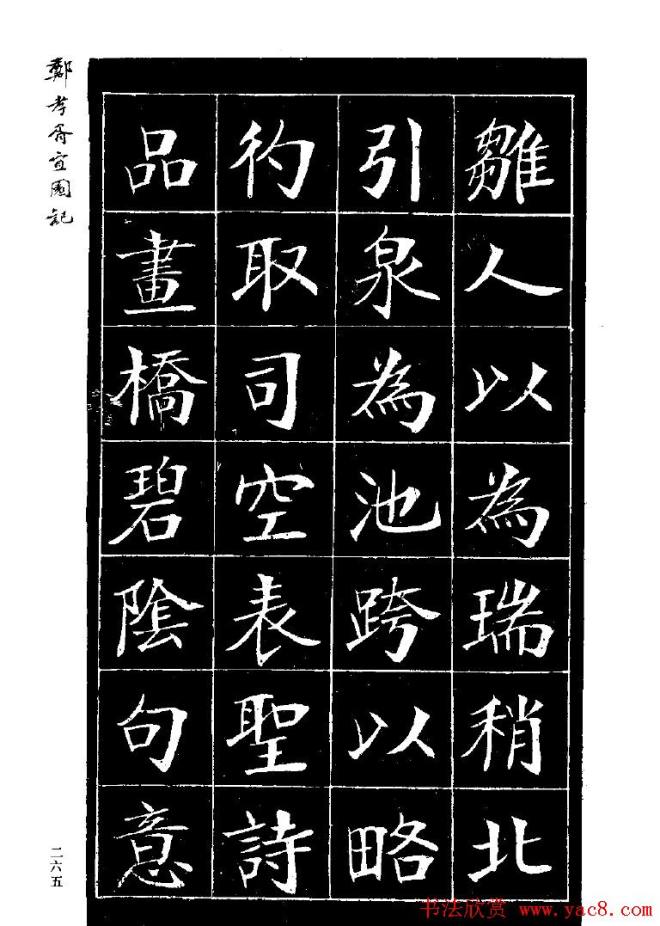 鄭孝胥宜園記
雛人以為瑞稍北
引泉為池跨以略
彴取司空表聖詩
品畫橋碧陰句意
二六五
书法欣赏 www.yac8.com